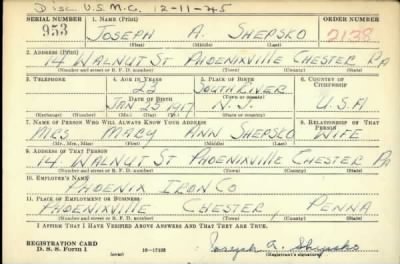 Disc. U.S.M.C. 12-11-45
SERIAL NUMBER 1. NAME (Print) ORDER NUMBER
953 JOSEPH A. SHEPSKO 2138
(First) (Middle) (Last)
2. ADDRESS (Print)
14 WALNUT ST PHOENIXVILLE CHESTER PA
(Number and street or R. F. D. number) (Town) (County) (State)
3. TELEPHONE 4. AGE IN YEARS 5. PLACE OF BIRTH 6. COUNTRY OF CITIZENSHIP
23 SOUTH RIVER
DATE OF BIRTH (Town or county)
JAN 23 1917 N.J. USA
(Exchange) (Number) (Mo.) (Day) (Yr.) (State or country)
7. NAME OF PERSON WHO WILL ALWAYS KNOW YOUR ADDRESS 8. RELATIONSHIP OF THAT PERSON
MRS MARY ANN SHEPSKO WIFE
(Mr., Mrs., Miss) (First) (Middle) (Last)
9. ADDRESS OF THAT PERSON
14 WALNUT ST PHOENIXVILLE CHESTER PA
(Number and street or R. F. D. number) (Town) (County) (State)
10. EMPLOYER'S NAME
PHOENIX IRON CO
11. PLACE OF EMPLOYMENT OR BUSINESS
PHOENIXVILLE CHESTER, PENNA
(Number and street or R. F. D. number) (Town) (County) (State)
I AFFIRM THAT I HAVE VERIFIED ABOVE ANSWERS AND THAT THEY ARE TRUE.
REGISTRATION CARD Joseph A. Shepsko
D. S. S. Form 1 (over) (Registrant's signature)